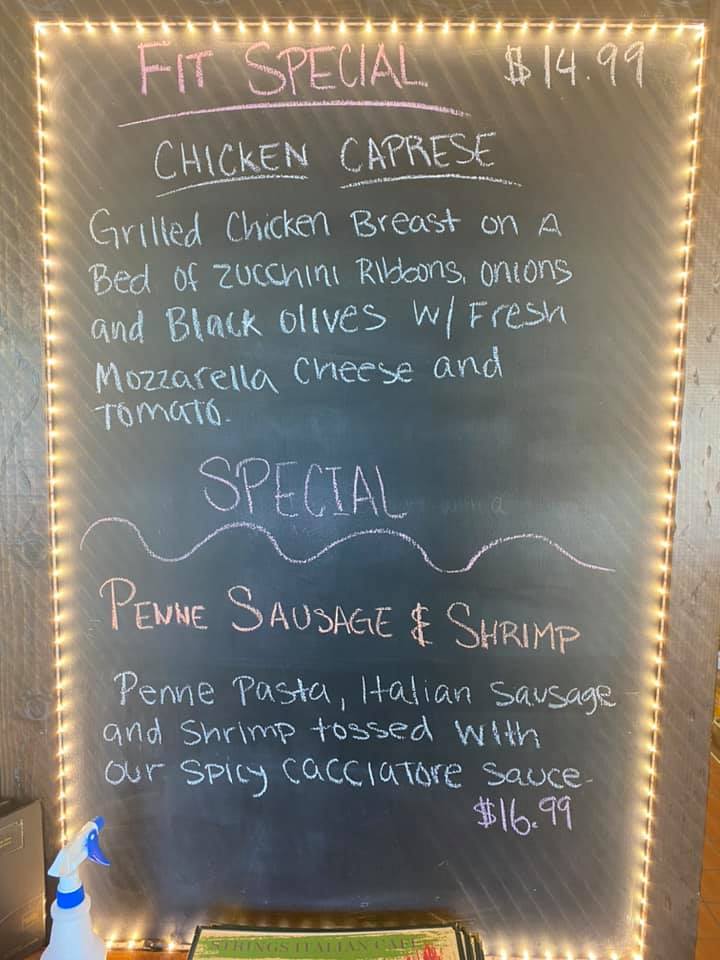 FIT SPECIAL $14.99
CHICKEN CAPRESE
Grilled Chicken Breast on A
Bed of zucchini Ribbons, onions
and Black olives w/ Fresh
Mozzarella Cheese and
Tomato.
SPECIAL
PENNE SAUSAGE & SHRIMP
Penne Pasta, Italian Sausage
and Shrimp tossed with
our spicy cacciatore sauce-
$16.99
STRINGS ITALIAN CAFE